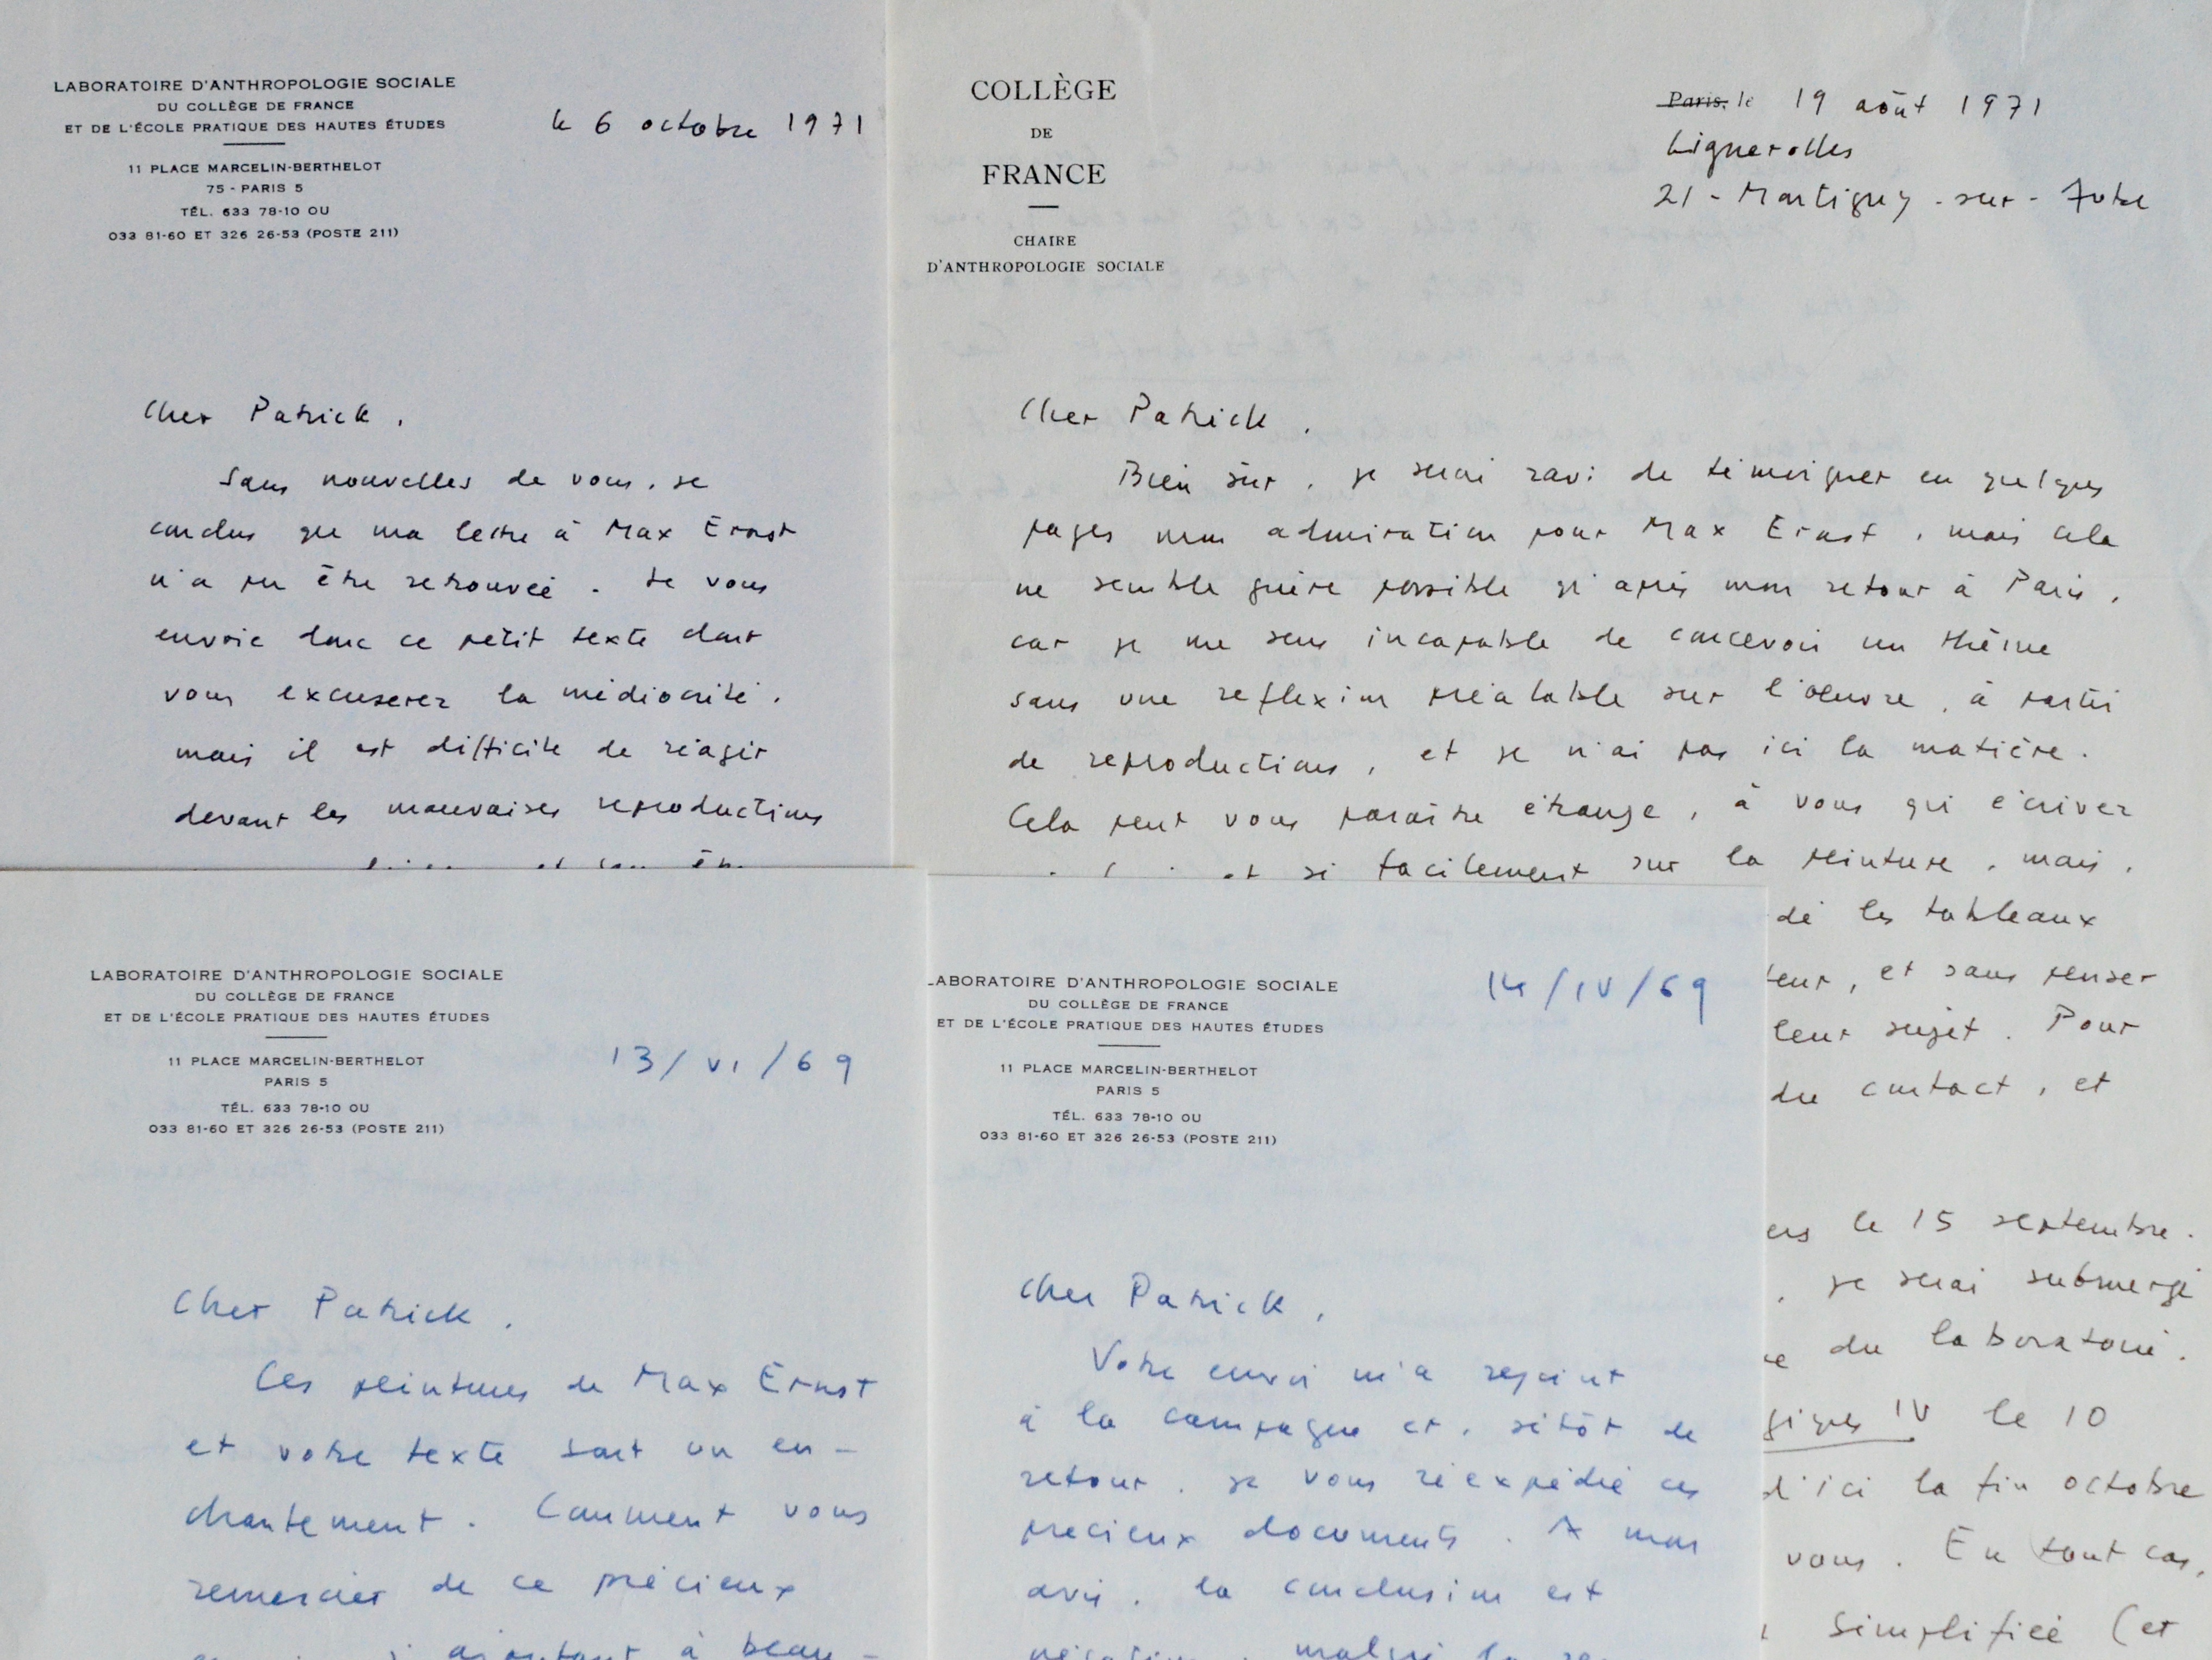 LABORATOIRE D'ANTHROPOLOGIE SOCIALE
DU COLLÈGE DE FRANCE
ET DE L'ÉCOLE PRATIQUE DES HAUTES ÉTUDES
11 PLACE MARCELIN-BERTHELOT
75 - PARIS 5
TÉL. 633 78-10 OU
033 81-60 ET 326 26-53 (POSTE 211)
le 6 octobre 1971
Cher Patrick,
Sans nouvelles de vous, je
conclus que ma lettre à Max Ernst
n'a pu être retrouvée. Je vous
envoie donc ce petit texte dont
vous excuserez la médiocrité,
mais il est difficile de réagir
devant les mauvaises reproductions
COLLÈGE
DE
FRANCE
CHAIRE
D'ANTHROPOLOGIE SOCIALE
Paris, le 19 août 1971
Lignerolles
21 - Montigny-sur-Aube
Cher Patrick,
Bien sûr, je serai ravi de témoigner en quelques
pages mon admiration pour Max Ernst, mais cela
ne semble guère possible qu'après mon retour à Paris,
car je me sens incapable de concevoir un thème
sans une réflexion préalable sur l'œuvre, à partir
de reproductions, et je n'ai pas ici la matière.
Cela peut vous paraître étrange, à vous qui écrivez
et si facilement sur la peinture, mais,
dé les tableaux
teur, et sans penser
leur sujet. Pour
du contact, et
ers le 15 septembre.
, je serai submergé
ce du laboratoire.
giques IV le 10
d'ici la fin octobre
vous. En tout cas,
simplifiée (et
LABORATOIRE D'ANTHROPOLOGIE SOCIALE
DU COLLÈGE DE FRANCE
ET DE L'ÉCOLE PRATIQUE DES HAUTES ÉTUDES
11 PLACE MARCELIN-BERTHELOT
PARIS 5
TÉL. 633 78-10 OU
033 81-60 ET 326 26-53 (POSTE 211)
13/VI/69
Cher Patrick,
Ces peintures de Max Ernst
et votre texte sont un en-
chantement. Comment vous
remercier de ce précieux
ajoutant à beau-
LABORATOIRE D'ANTHROPOLOGIE SOCIALE
DU COLLÈGE DE FRANCE
ET DE L'ÉCOLE PRATIQUE DES HAUTES ÉTUDES
11 PLACE MARCELIN-BERTHELOT
PARIS 5
TÉL. 633 78-10 OU
033 81-60 ET 326 26-53 (POSTE 211)
14/IV/69
Cher Patrick,
Votre envoi m'a rejoint
à la campagne et, sitôt de
retour, je vous réexpédie ces
précieux documents. A mon
avis, la conclusion est
négative, malgré la